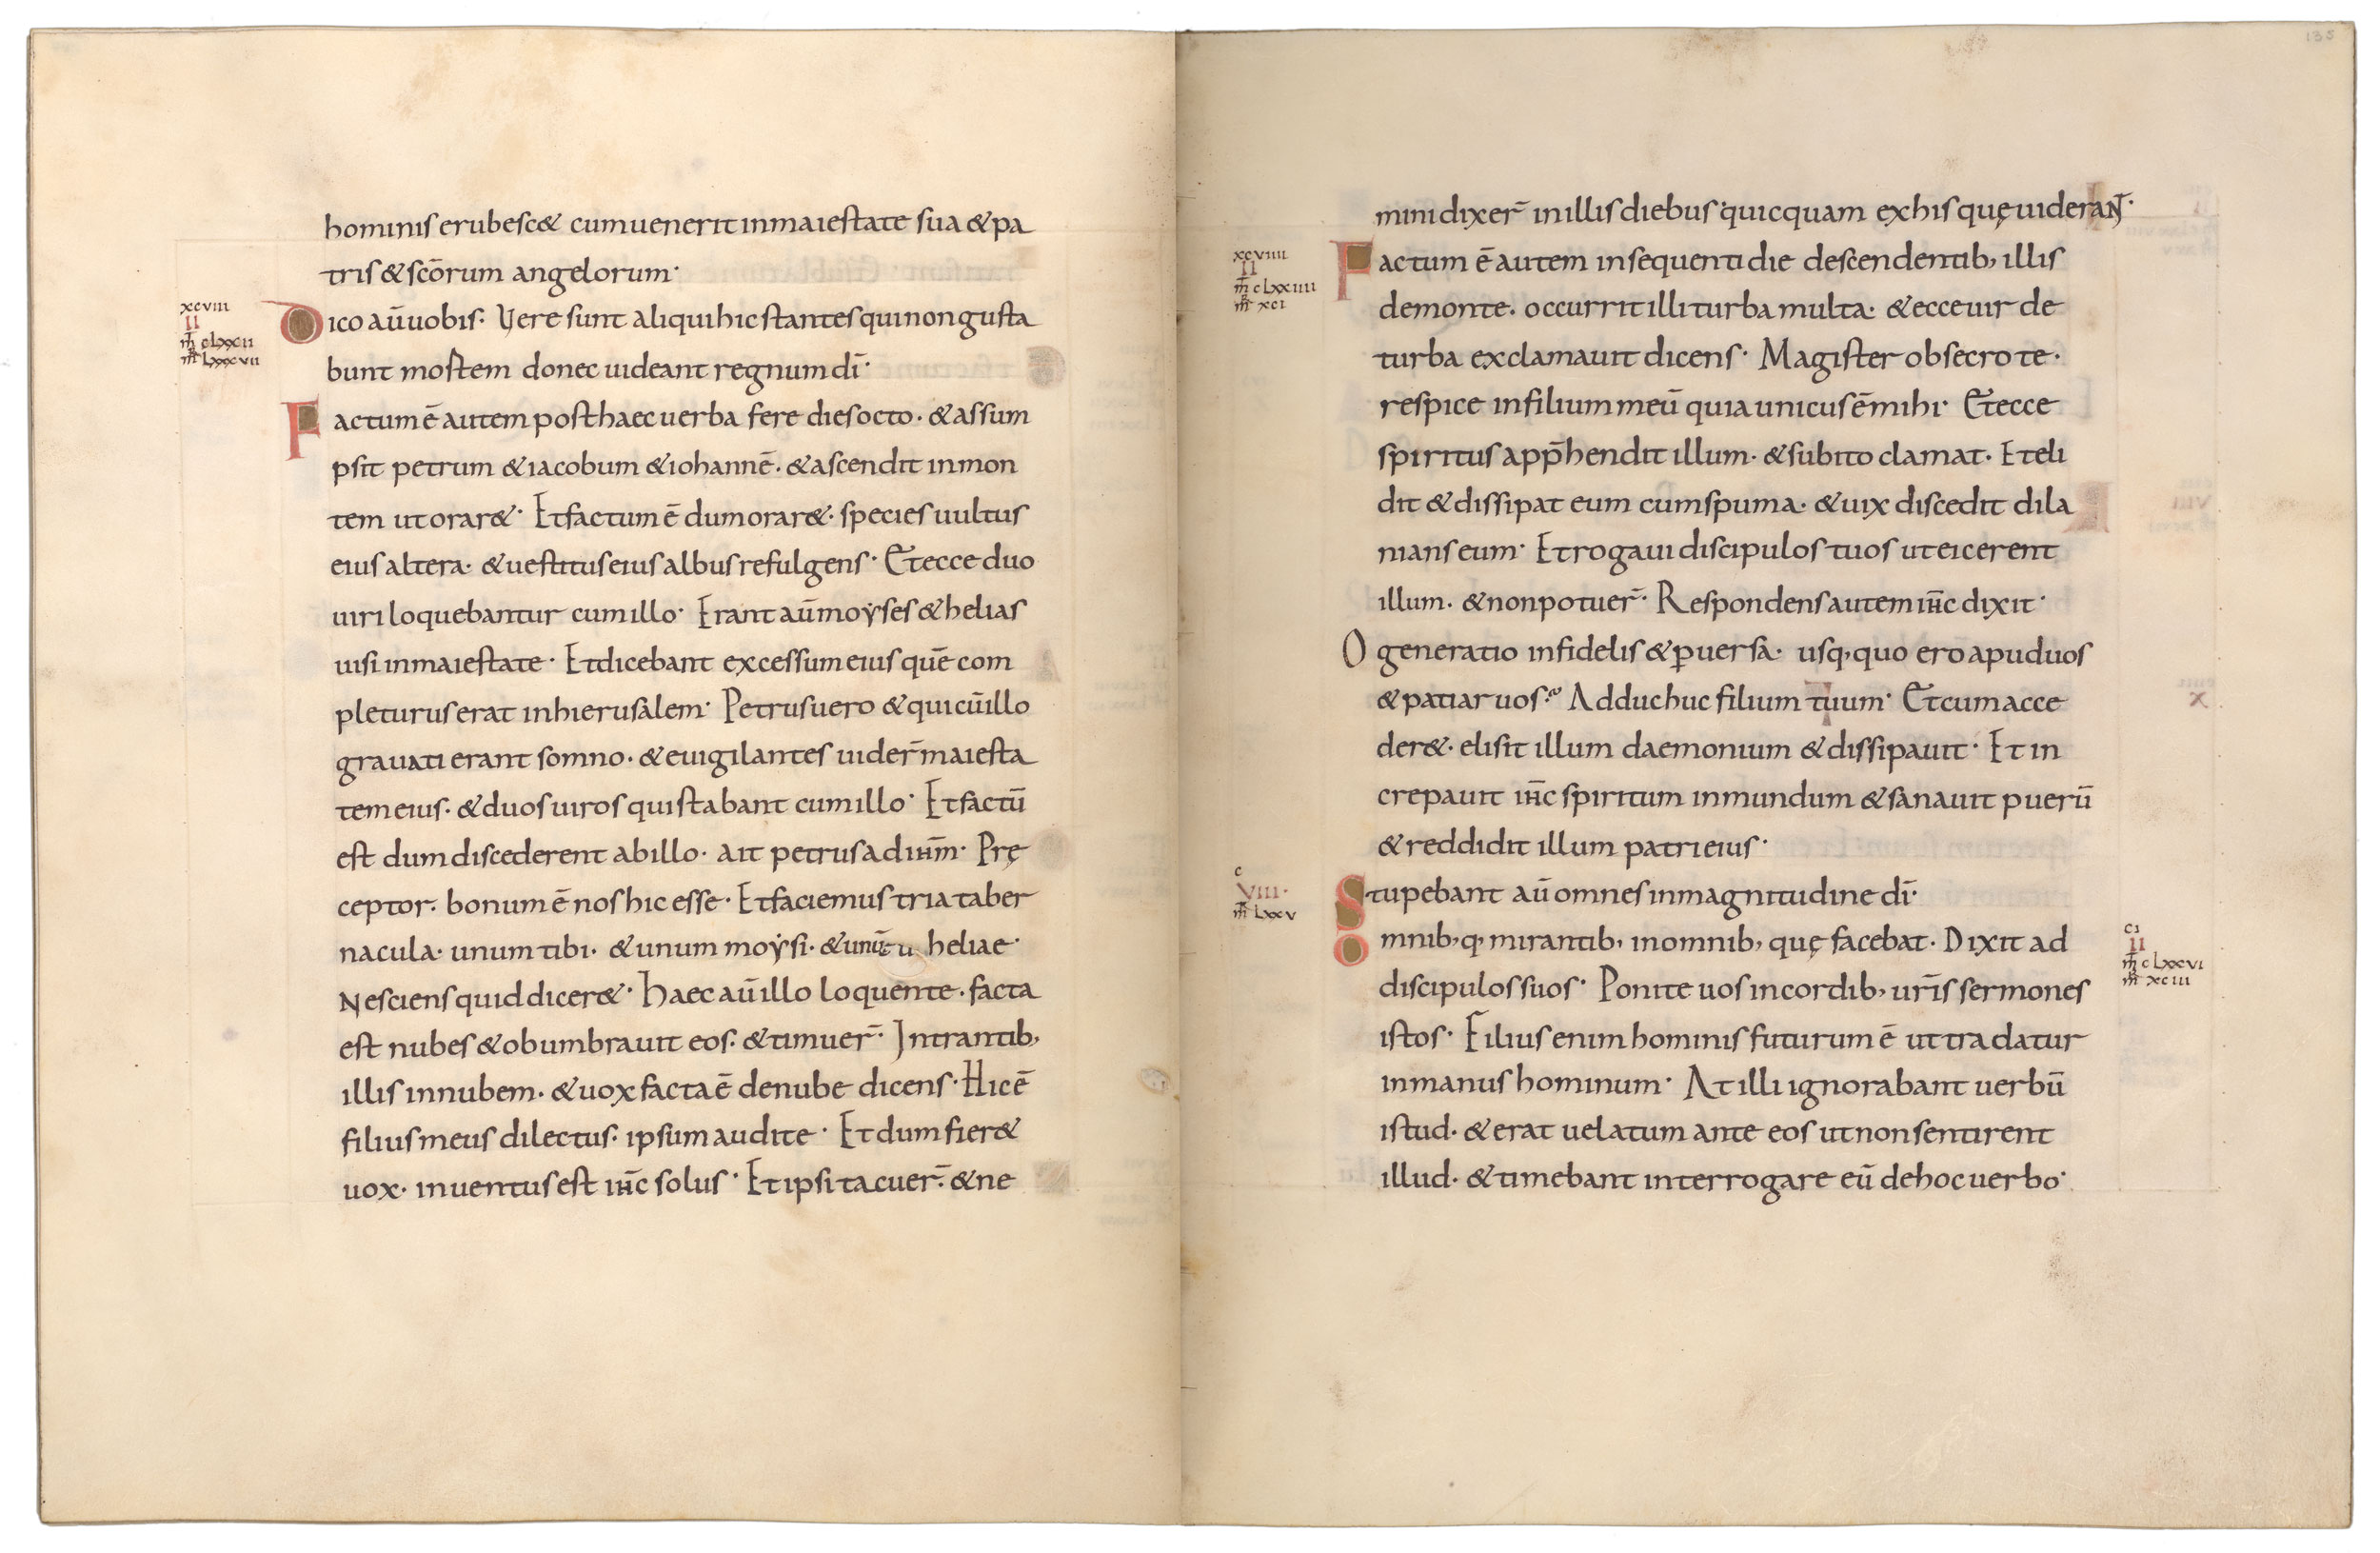 hominis erubescet cum uenerit in maiestate sua & pa
tris & scōrum angelorum·
xcviii
II
m̄t clxxii
m̄r lxxxvii
Dico aū uobis· Vere sunt aliqui hic stantes qui non gusta
bunt mortem donec uideant regnum dī·
Factum ē autem post haec uerba fere dies octo· & assum
psit petrum & iacobum & iohannē· & ascendit in mon
tem ut orar&· Et factum ē dum orar&· species uultus
eius altera· & uestitus eius albus refulgens· Et ecce duo
uiri loquebantur cum illo· Erant aū moyses & helias
uisi in maiestate· Et dicebant excessum eius quē com
pleturus erat in hierusalem· Petrus uero & qui cū illo
grauati erant somno· & euigilantes uider̄ maiesta
tem eius· & duos uiros qui stabant cum illo· Et factū
est dum discederent ab illo· ait petrus ad ihm̄· Pre̜
ceptor· bonum ē nos hic esse· Et faciemus tria taber
nacula· unum tibi· & unum moysi· & unū heliae·
Nesciens quid dicer&· Haec aū illo loquente· facta
est nubes & obumbrauit eos· & timuer̄· Intrantib;
illis in nubem· & uox facta ē de nube dicens· Hic ē
filius meus dilectus· ipsum audite· Et dum fier&
uox· inuentus est ihc̄ solus· Et ipsi tacuer̄· & ne
135
mini dixer̄ in illis diebus quicquam ex his que̜ uiderant·
xcviiii
II
m̄t clxxiiii
m̄r xci
Factum ē autem in sequenti die descendentib; illis
de monte· occurrit illi turba multa· & ecce uir de
turba exclamauit dicens· Magister obsecro te·
respice in filium meū quia unicus ē mihi· Et ecce
spiritus app̄hendit illum· & subito clamat· Et eli
dit & dissipat eum cum spuma· & uix discedit dila
nians eum· Et rogaui discipulos tuos ut eicerent
illum· & non potuer̄· Respondens autem ihc̄ dixit·
O generatio infidelis & ꝑuersa· usq; quo ero apud uos
& patiar uos? Adduc huc filium tuum· Et cum acce
der&· elisit illum daemonium & dissipauit· Et in
crepauit ihc̄ spiritum inmundum & sanauit puerū
& reddidit illum patri eius·
c
VIII·
m̄t lxxv
Stupebant aū omnes in magnitudine dī·
Omnib; q; mirantib; in omnib; que̜ facebat· Dixit ad
ci
II
m̄t clxxvi
m̄r xciii
discipulos suos· Ponite uos in cordib; ur̄is sermones
istos· Filius enim hominis futurum ē ut tradatur
in manus hominum· At illi ignorabant uerbū
istud· & erat uelatum ante eos ut non sentirent
illud· & timebant interrogare eū de hoc uerbo·